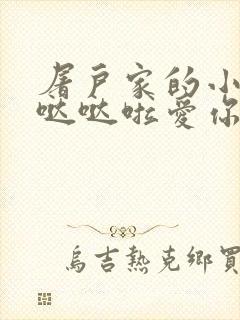 屠戶家的小
哒哒啦愛你
烏吉熱克鄉買